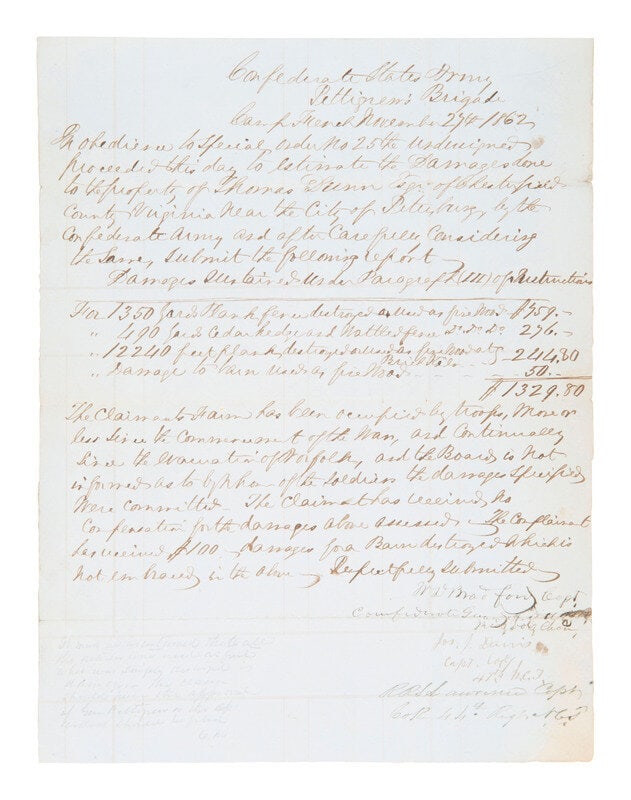 Confederate States Army
Pettigrew's Brigade
Camp French November 27th 1862
In obedience to Special order No 25 the undersigned
proceeded this day to estimate the Damages done
to the property of Thomas Dunn Esqr of Chesterfield
County Virginia Near the City of Petersburg, by the
Confederate Army and after Carefully Considering
the Same, submit the following report
Damages Sustained under Paragraph (III) of Instructions
For 1350 yards Plank fence destroyed & used as fire wood $759.-
" 490 yards Cedar hedge and Wattled fence Do Do Do 276.-
" 12240 feet plank, destroyed & used as fire wood at 244.80
" Damage to barn used as fire Wood - - - 50.-
$1329.80
The Claimants Farm has been occupied by troops, More or
less Since the Commencement of the War, and Continually
Since the Evacuation of Norfolk, and the Board is Not
informed as to by whom of the Soldiers the damages Specified
Were committed. The Claimant has received No
Compensation for the damages above assessed. The Complainant
has received $100 damages for a Barn destroyed which is
Not embraced in the above Respectfully Submitted
Wd Bradford Capt
Confederate
Jos. J. Davis
Capt. Co G
47 N.C.T.
R R Lawrence Capt
Co 44th Regt N.C.T.